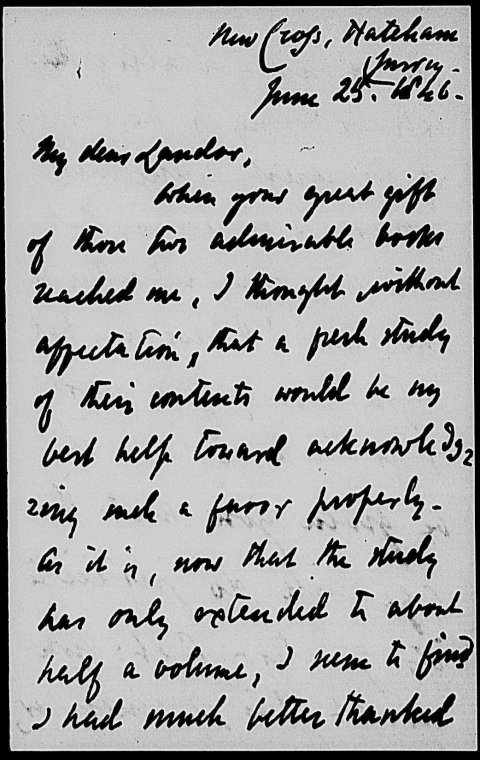 New Cross, Hatcham
Surrey.
June 25. 1846.
My dear Landor,
When your great gift
of those two admirable books
reached me, I thought, without
affectation, that a fresh study
of their contents would be my
best help toward acknowledg-
ing such a favor properly.
As it is, now that the study
has only extended to about
half a volume, I seem to find
I had much better thanked